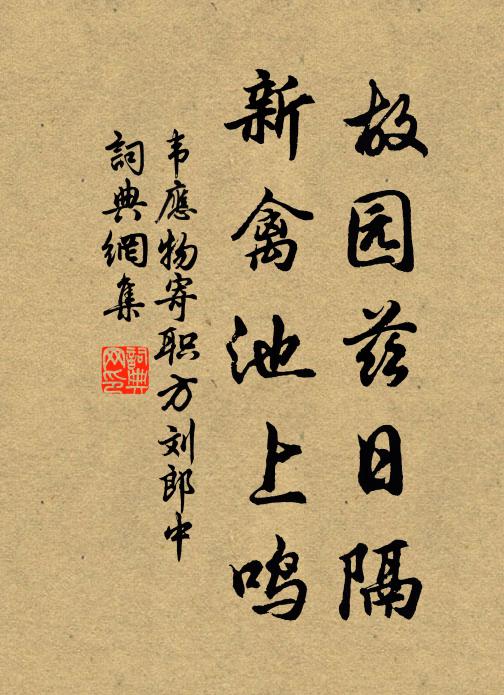 故园兹日隔
新禽池上鸣
韦應物寄职方刘郎中
詞典網集
詞典网印